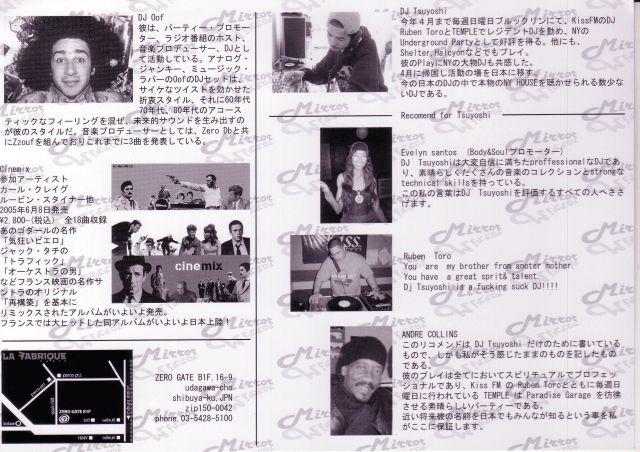 DJ Oof
彼は、パーティー・プロモー
ター、ラジオ番組のホスト、
音楽プロデューサー、DJとし
て活動している。アナログ・
ジャンキー、ミュージック・
ラバーのOofのDJセットは、
サイケなツイストを効かせた
折衷スタイル、それに60年代
70年代、80年代のアコース
ティックなフィーリングを混ぜ、未来的サウンドを生み出すの
が彼のスタイルだ。音楽プロデューサーとしては、Zero Dbと共
にZzoufを組んでおりこれまでに3曲を発表している。
Cinemix
参加アーティスト
カール・クレイグ
ルービン・スタイナー他
2005年6月8日発売
¥2,800-(税込) 全18曲収録
あのゴダールの名作
「気狂いピエロ」
ジャック・タチの
「トラフィック」
「オーケストラの男」
などフランス映画の名作サ
ントラのオリジナル
「再構築」を基本に
リミックスされたアルバムがいよいよ発売。
フランスでは大ヒットした同アルバムがいよいよ日本上陸！
cinemix
LA FABRIQUE
ZERO GATE B1F
ZERO GATE B1F, 16-9
udagawa-cho
shibuya-ku, JPN
zip150-0042
phone. 03-5428-5100
DJ Tsuyoshi
今年４月まで毎週日曜日ブルックリンにて、KissFMのDJ
Ruben ToroとTEMPLEでレジデントDJを勤め、NYの
Underground Partyとして好評を得る。他にも、
Shelter, Halcyonなどでもプレイ。
彼のPlayにNYの大物DJも共感した。
4月に帰国し活動の場を日本に移す。
今の日本のDJの中で本物のNY HOUSEを聴かせられる数少な
いDJである。
Recomend for Tsuyoshi
Evelyn santos (Body&Soulプロモーター)
DJ Tsuyoshiは大変自信に満ちたproffessionalなDJであ
り、素晴らしくたくさんの音楽のコレクションとstrongな
technical skillsを持っている。
この私の言葉はDJ Tsuyoshiを評価するすべての人へささ
げます。
Ruben Toro
You are my brother from anoter mother.
You have a great sprit& talent.
Dj Tsuyoshi is a fucking suck DJ!!!!
ANDRE COLLINS
このリコメンドは DJ Tsuyoshi だけのために書いている
もので、しかも私がそう感じたままのものを記したもので
ある。
彼のプレイは全てにおいてスピリチュアルでプロフェッ
ショナルであり、Kiss FM の Ruben Toroとともに毎週日
曜日に行われている TEMPLE は Paradise Garage を彷彿
させる素晴らしいパーティーである。
近い将来彼の名前を日本でもみんなが知るという事を私が
ここに保証します。